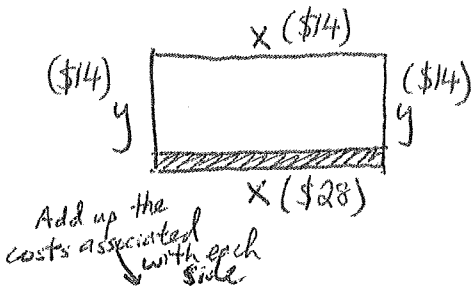 x ($14)
($14)
($14)
y
y
x ($28)
Add up the
costs associated
with each
side